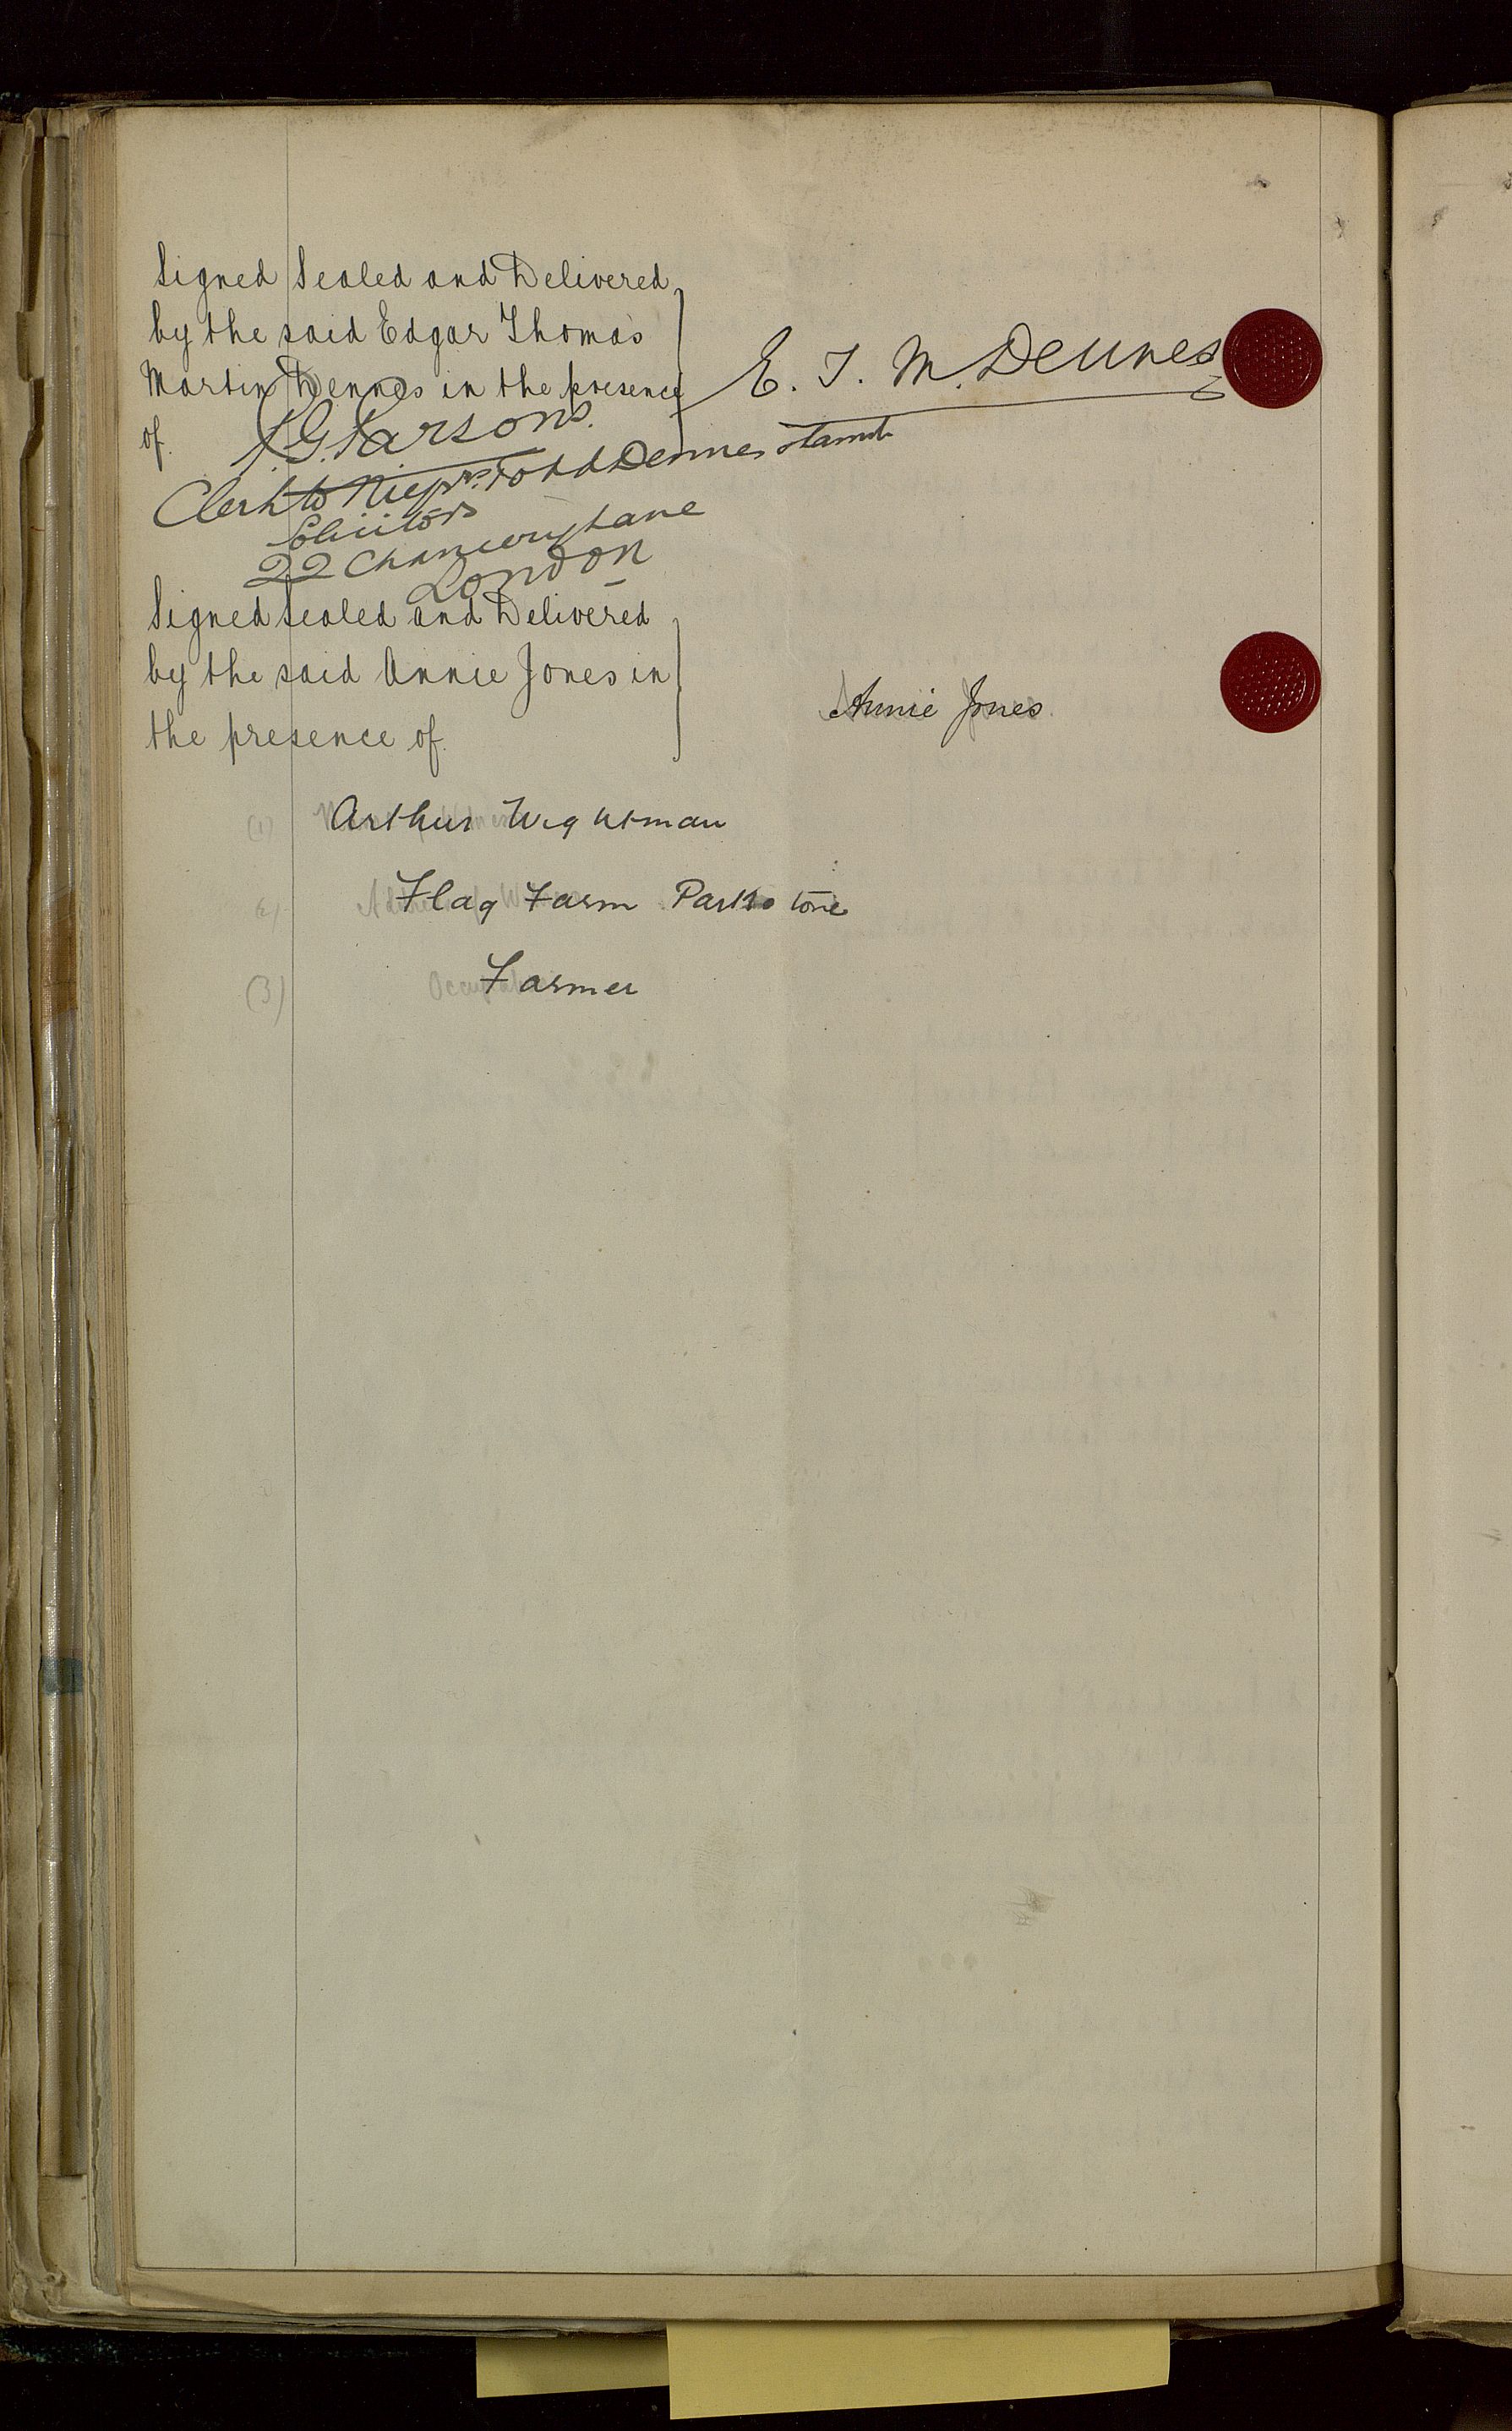 Signed Sealed and Delivered
by the said Edgar Thomas
Martin Dennes in the presence
of
E. T. M. Dennes
Parsons.
Clerk to Messrs Todd Dennes & Lamb
Solicitors
22 Chancery Lane
London
Signed Sealed and Delivered
by the said Annie Jones in
the presence of
Annie Jones
(1) Arthur Wightman
(2) Flag Farm Parkstone
(3) Farmer